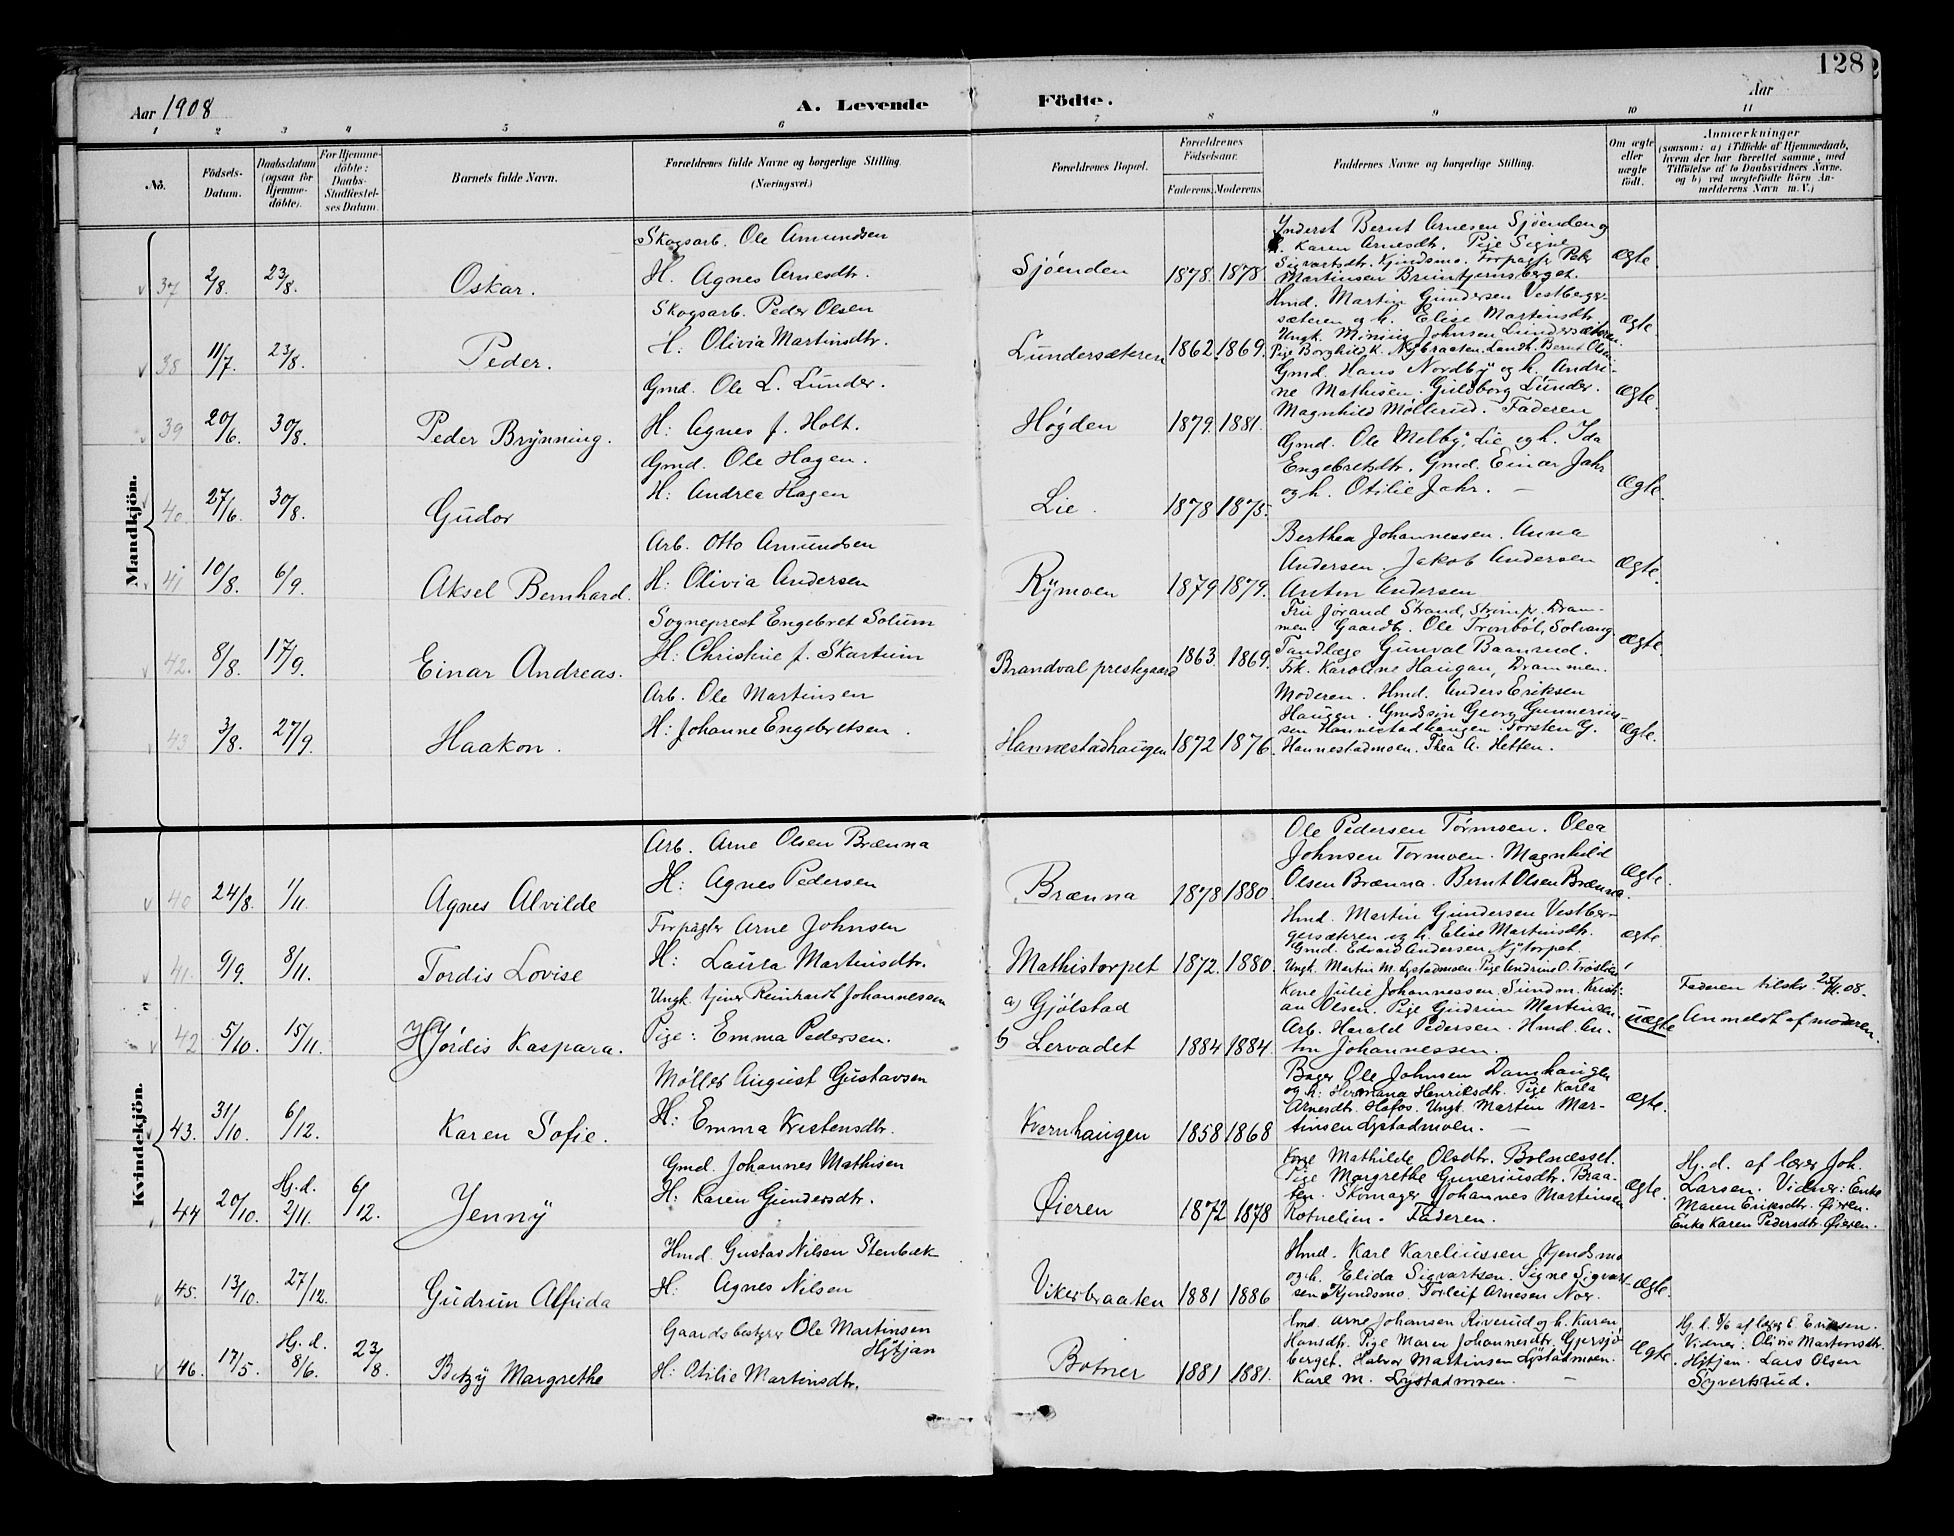 128
Aar 1908
A. Levende
Födte.
Aar
1 2 3 4 5 6 7 8 9 10 11
No.
Födsels-Datum.
Daabsdatum (ogsaa for Hjemme-döbte).
For Hjemme-döbte: Daabs-Stadfæstel-ses Datum.
Barnets fulde Navn.
Forældrenes fulde Navne og borgerlige Stilling. (Næringsvei.)
Forældrenes Bopæl.
Forældrenes Födselsaar.
Faderens. Moderens.
Faddernes Navne og borgerlige Stilling.
Om ægte eller uægte födt.
Anmærkninger
(saasom: a) i Tilfælde af Hjemmedaab, hvem der har forrettet samme, med Tilföielse af to Daabsvidners Navne, og b) ved uægtefödte Börn An-melderens Navn m. V.)
Mandkjön.
37 2/8. 23/8. Oskar.
Skogsarb. Ole Amundsen
H. Agnes Arnesdtr.
Sjøenden 1878. 1878
Inderst Bernt Arnesen Sjøenden og
h. Karen Arnesdt. Pige Signe
Sigvartsdtr. Kjindsmo. Forpagtr. Petr
Martinsen Bruntjernsberget.
Ægte
38 11/7. 23/8. Peder.
Skogsarb. Peder Olsen
H: Olivia Martinsdtr.
Lundersæteren 1862. 1869.
Hmd. Martin Gundersen Vestberg-
sæteren og h. Elise Martinsdtr.
Ungk. Johnsen Lundersæteren.
Pige Borghild K. Nybraaten. Landh. Bernt Olsen
ægte.
39 20/6. 30/8. Peder Brynning.
Gmd. Ole L. Lunder.
H: Agnes f. Holt.
Høgden 1879. 1881.
Gmd. Hans Nordby og h. Andri-
ne Mathisen. Guldborg Lunder.
Magnhild Møllerud. Faderen
Ægte.
40. 27/6. 30/8. Gudor
Gmd. Ole Hagen.
H: Andrea Hagen
Lie. 1878 1875.
Gmd. Ole Melby, Lie og h. Ida
Engebretsdtr. Gmd. Einar Jahr
og h. Otilie Jahr. —
Ægte.
41 10/8. 6/9. Aksel Bernhard.
Arb. Otto Amundsen
H: Olivia Andersen
Rymoen 1879 1879.
Berthea Johannessen. Anna
Andersen. Jakob Andersen
Anton Andersen
Ægte.
42. 8/8. 17/9. Einar Andreas.
Sogneprest Engebret Solum
H: Christine f. Skartum
Brandval prestegaard 1863. 1869.
Fru Jorand Strand, Strømp. Dram-
men. Gaardbr. Ole Trønbøl, Solvang
Tandlæge Gunval Baanrud.
Frk. Karoline Haugan, Drammen.
Ægte.
43 3/8. 27/9. Haakon.
Arb. Ole Martinsen
H: Johanne Engebretsen.
Hannestadhaugen 1872 1876.
Moderen. Hmd. Anders Eriksen
Haugen. Gmdssøn Georg Gunnerius-
sen Hannestadhaugen. Torsten G.
Hannestadmoen. Thea A. Hetten.
Ægte.
Kvindekjön.
40 24/8. 1/11. Agnes Alvilde
Arb. Arne Olsen Brænna
H: Agnes Pedersen
Brænna 1878 1880.
Ole Pedersen Tormoen. Olea
Johnsen Tormoen. Magnhild
Olsen Brænna. Bernt Olsen Brænna.
Ægte.
41. 9/9. 8/11. Tordis Lovise
Forpagter Arne Johnsen
H: Laura Martinsdtr.
Mathistorpet 1872. 1880.
Hmd. Martin Gundersen Vestber-
gersæteren og h. Elise Martinsdtr.
Gmd. Edvard Andersen Nytorpet.
Ungk. Martin M. Lystadmoen. Pige Andrine O.
ægte.
42 5/10. 15/11. Hjørdis Kaspara.
Ungk. tjener Reinhardt Johannesen
Pige: Emma Pedersen.
a) Gjølstad
b) Lervadet 1884 1884.
Kone Julie Johannessen. Sundm. Kristi-
an Olsen. Pige Gudrun Martinsen.
Arb. Harald Pedersen. Hmd. An-
ton Johannessen.
uægte
Faderen tilskr. 25/11.08.
Anmeldt af moderen.
43. 31/10. 6/12. Karen Sofie.
Møller August Gustavsen
H: Emma Kristensdtr.
Kvernhaugen 1858 1868
Bager Ole Johnsen Damhaugen
og h: Hermana Henriksdtr. Pige Karla
Arnesdtr. Hofos. Ungk. Martin Mar-
tinsen Lystadmoen. —
ægte.
44 20/10. Hj.d. 2/11. 6/12. Jenny
Gmd. Johannes Mathisen
H: Karen Gundersdtr.
Øieren 1872 1878
Kone Mathilde Olsdtr. Bolnæsset.
Pige Margrethe Guneriusdtr. Braa-
ten. Skomager Johannes Martinsen
Rotnelien. Faderen.
Ægte.
Hj.d. af lærer Joh.
Larsen. Vidner: Enke
Maren Eriksdtr. Øieren.
Enke Karen Pedersdtr. Øieren.
45. 13/10. 27/12. Gudrun Alfrida
Hmd. Gustav Nilsen Stenbæk
H: Agnes Nilsen
Vikerbraaten 1881 1886
Hmd. Karl Kareliussen Kjendsmo
og h. Elida Sigvartsen. Signe Sigvart-
sen Kjendsmo. Torleif Arnesen Nor.
Ægte.
46. 17/5. Hj.d. 8/6. 23/8. Betzy Margrethe
Gaardsbestyrer Ole Martinsen
Hytjan
H: Otilie Martinsdtr.
Botner 1881 1881.
Hmd. Arne Johansen Riverud og h. Karen
Hansdtr. Pige Maren Johannesdtr. Gjersjø-
berget. Halvor Martinsen Lystadmoen.
Karl M. Lystadmoen. —
Ægte
Hj.d. 8/6 af lærer E. Eriksen.
Vidner: Olivie Martinsdtr.
Hytjan. Lars Olsen
Syvertsrud.